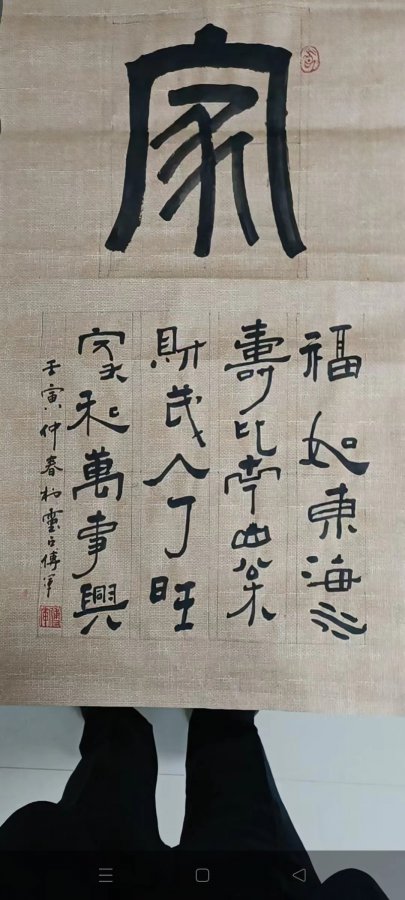 家
福如東海水
壽比南山枀
財茂人丁旺
家和萬事興
壬寅仲春於靈石傅軍